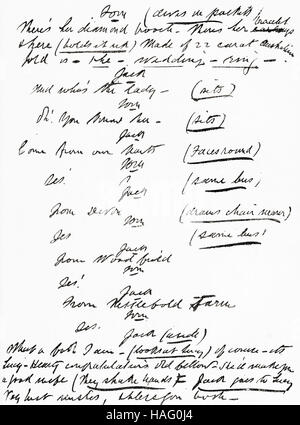 Tom (dives in pockets)
There's her diamond brooch - There's her
& here (holds it up) Made of 22 carat Australian
Gold is - the - wedding - ring -
Jack
And who's the lady - (sits)
Tom
Oh! You know her - (sits)
Jack
Come from our parts (Faces round)
Tom
Yes! (same bus.)
Jack
From Devon (draws chair nearer)
Tom
Yes (same bus)
Jack
From
Tom
Yes!
Jack
From Nettlebold Farm
Tom
Yes.
Jack (aside)
What a fool I am - (looks at Lucy) of course - its
Lucy - Hearty congratulations old fellow - She'll make you
a good wife (They shake hands & Jack goes to Lucy
Very best wishes,
a alamy stock photo
HAG0J4